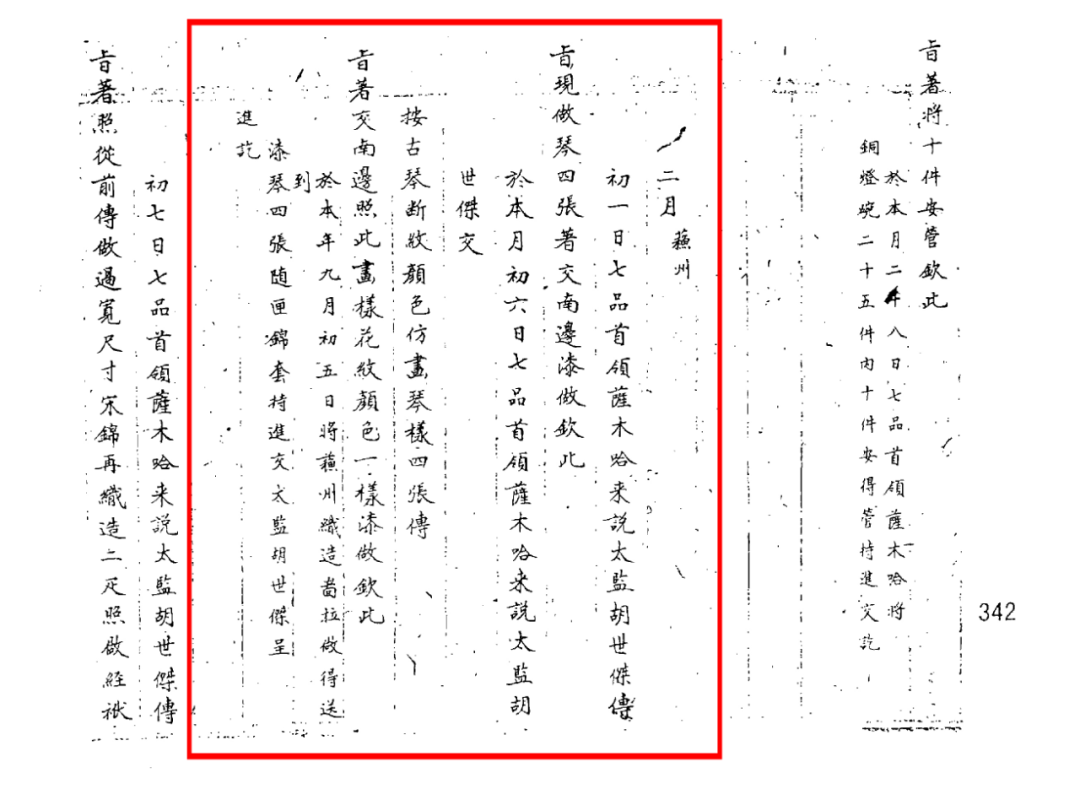 旨著将十件安管欽此
於本月二十八日七品首領薩木哈將
銅燈碗二十五件内十件安得管持進交訖
二月 蘓州
初一日七品首領薩木哈来說太監胡世傑傳
旨現做琴四張著交南邊漆做欽此
於本月初六日七品首領薩木哈来說太監胡
世傑交
按古琴断紋顔色仿畫琴樣四張傳
旨著交南邊照此畫樣花紋顔色一樣漆做欽此
於本年九月初五日將蘓州織造啚拉做得送
到
漆琴四張随匣錦套持進交太監胡世傑呈
進訖
初七日七品首領薩木哈来説太監胡世傑傳
旨著照從前傳做過寬尺寸宋錦再織造二疋照做經袱
342